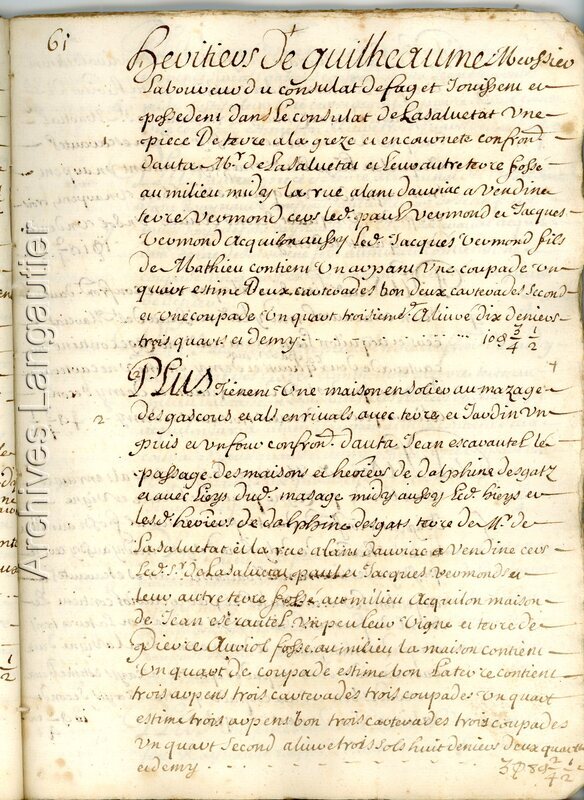 61
Heritiers De guilheaume Mersier
Laboureur du consulat de faget Jouissent et
possedent dans Le consulat de Lasalvetat une
1 piece De terre a la greze et encournete confron.
dauta Mr. de Lasalvetat et Leur autre terre fosse
au milieu midy la rue alant dauriac a Vendine
terre Vermond cers led. paul Vermond et Jacques
Vermond Acquilon aussy Led. Jacques Vermond fils
de Mathieu contient un arpant une coupade un
quart estime Deux carterades bon deux carterades second
et une coupade un quart troisieme Alivre dix deniers
trois quarts et demy 10 d 3/4 1/2
PLus Tienent Une maison en solier au mazage
2 des gascous et als enrivals avec terre et Jardin un
puis et un four confron. dauta Jean escarautel le
passage des maisons et heritiers de dalphine desgatz
et avec Lieys dud. masage midy aussy Led. hieys et
Lesd. heritiers de dalphine desgats terre de Mr. de
Lasalvetat et la rue alant dauriac a Vendine cers
Led. Sr. de Lasalvetat paul et Jacques Vermonds et
leur autre terre fossé au milieu Acquilon maison
de Jean un peu leur vigne et terre de
pierre Auriol fosse au milieu la maison contient
Un quart de coupade estime bon La terre contient
trois arpens trois carterades trois coupades un quart
estime trois arpens bon trois carterades trois coupades
un quart second alivre trois sols huit deniers Deux quarts
et demy 3 s 8 d 2/4 1/2
Archives Langautier